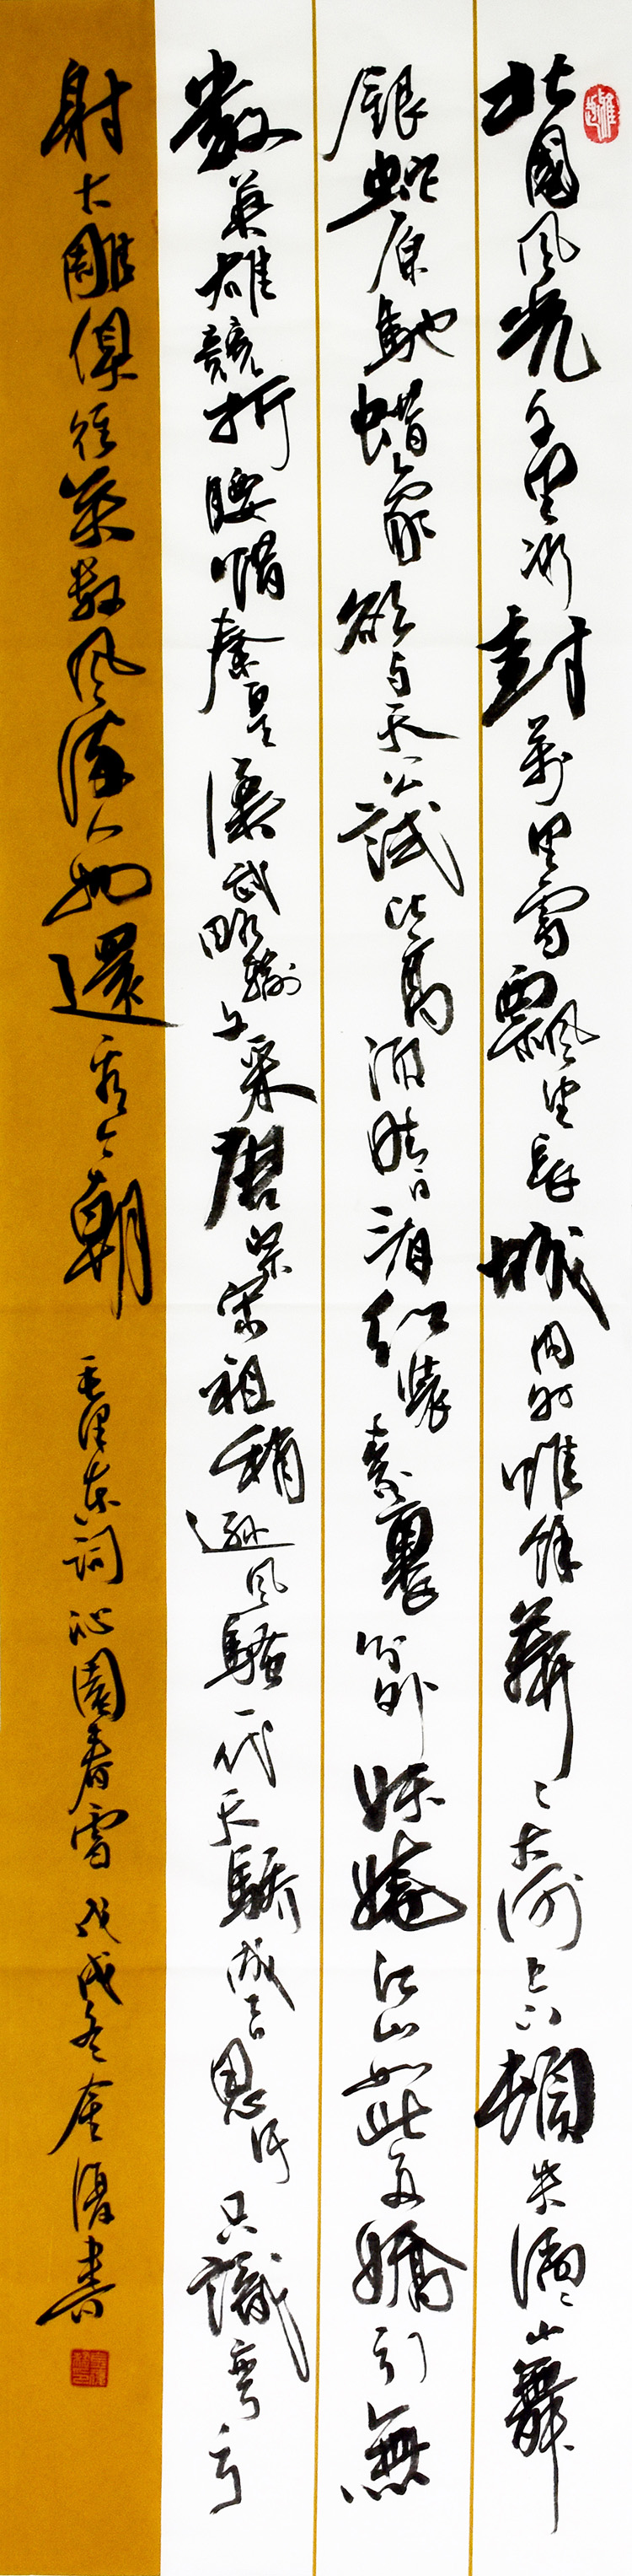 北國風光千里冰封萬里雪飄望長城内外惟餘莽〻大河上下頓失滔〻山舞
銀蛇原馳蜡象欲与天公試比高須晴日看紅裝素裹分外妖嬈江山如此多嬌引無
數英雄競折腰惜秦皇漢武略輸文采唐宗宋祖稍遜風騷一代天驕成吉思汗只識彎弓
射大雕俱往矣數風流人物還看今朝 毛澤東詞 沁園春雪 戊戌冬 書